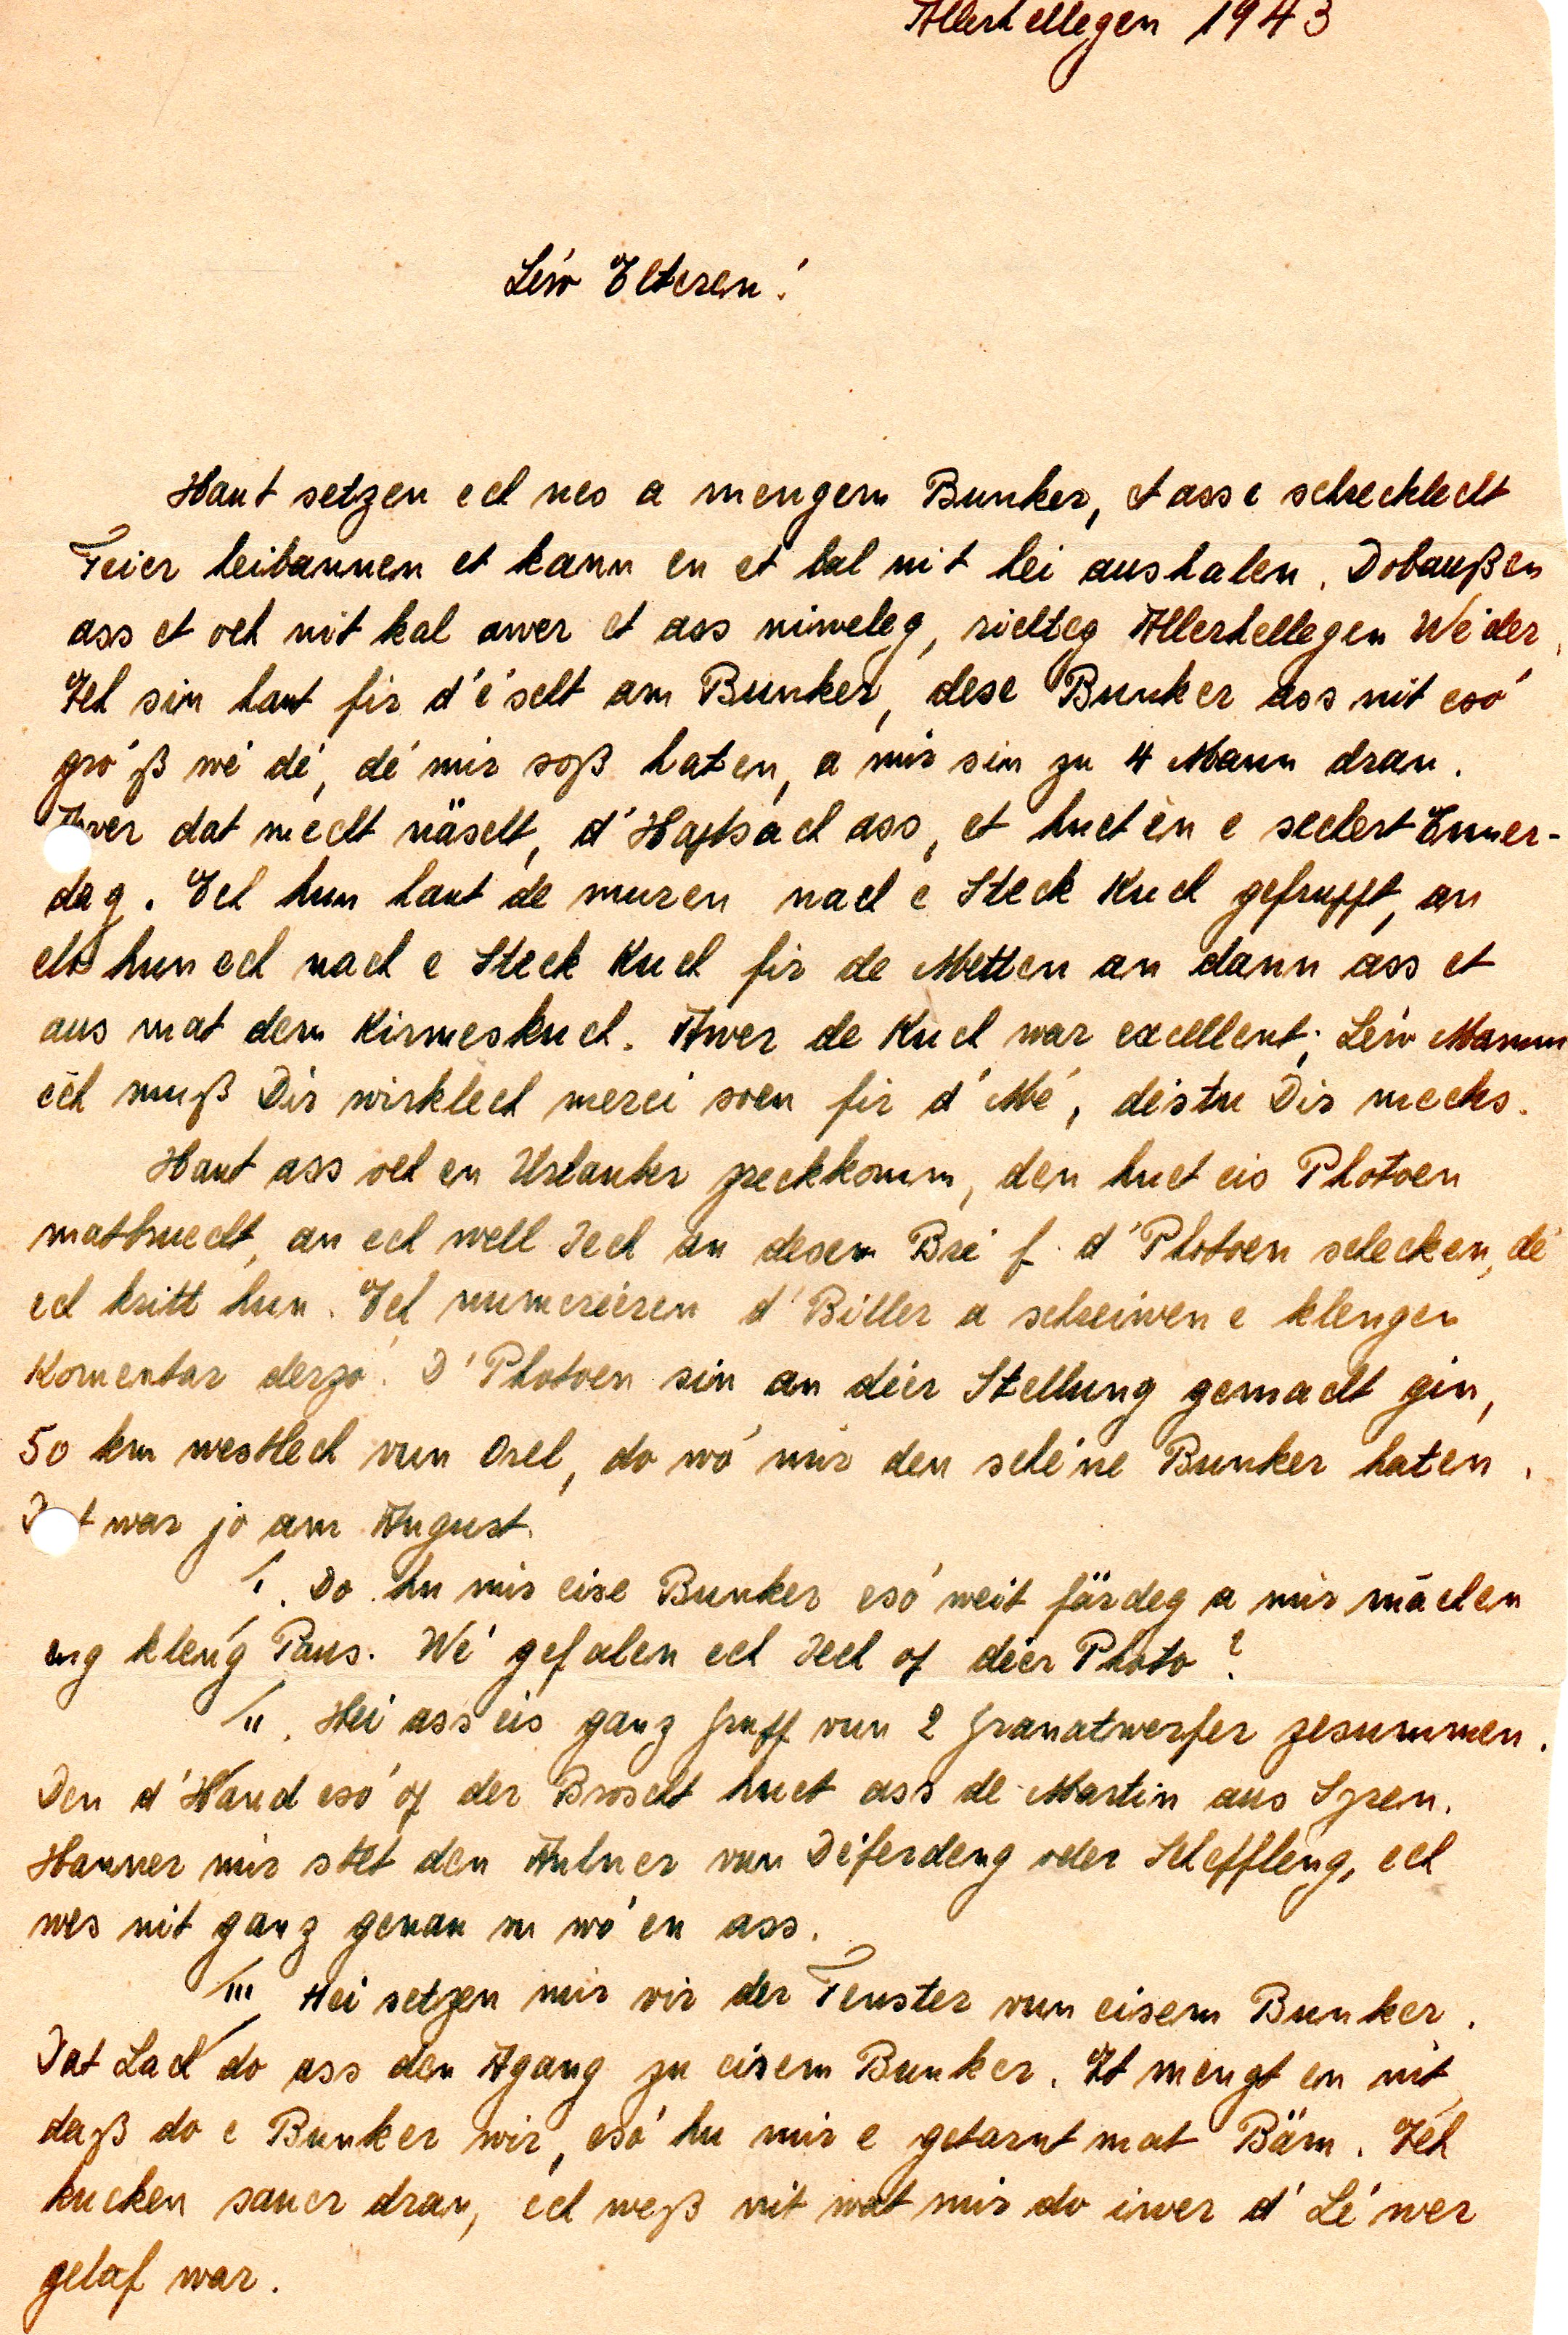 Allerhellegen 1943
Léiw Elteren!
Haut setzen ech nes a mengem Bunker, et ass e schrecklecht
Feier heibannen et kann en et bal nit hei aushalen. Dobaußen
ass et och nit kal awer et ass niweleg, richteg Allerhellegen Wéder.
Ech sin haut fir d'éscht am Bunker, dese Bunker ass nit esó
gróß wé dé, dé mir soß haten, a mir sin zu 4 Mann dran.
Awer dat mecht näscht, d'Haptsach ass, et huet én e sechert Enner-
dag. Ech hun haut de muren nach e Steck Kuch gefrupft, an
elo hun ech nach e Steck Kuch fir de Metten an dann ass et
aus mat dem Kirmeskuch. Awer de Kuch war excellent; Léiw Mamm
ech muß Dir wirklech merci soen fir d'Mé, déistu Dir mechs.
Haut ass och en Urlauber zreckkomm, den huet eis Photoen
matbruecht, an ech well Iech an desem Bréf d'Photoen schecken, dé
ech kritt hun. Ech numeréieren d'Biller a schreiwen e klengen
Komentar derzó. D'Photoen sin an déer Stellung gemacht gin,
50 km westlech vun Orel, do wó mir den schéine Bunker haten.
Dat war jo am August.
I. Do hu mir eise Bunker esó weit färdeg a mir máchen
eng kleng Paus. Wé gefalen ech Iech of déer Photo?
II. Hei ass eis ganz Grupp vun 2 Granatwerfer zesummen.
Den d'Hand esó of der Broscht huet ass de Martin aus Syren.
Hanner mir stét den vun Déferdeng oder Scheffleng, ech
wes nit ganz genau vu wó en ass.
III Hei setzen mir vir der Fenster vun eisem Bunker.
Dat Lach do ass den Agang zu eisem Bunker. Et mengt en nit
daß do e Bunker wir, esó hu mir e getarnt mat Bäm. Ech
kucken sauer dran, ech weß nit wat mir do iwer d'Léwer
gelaf war.